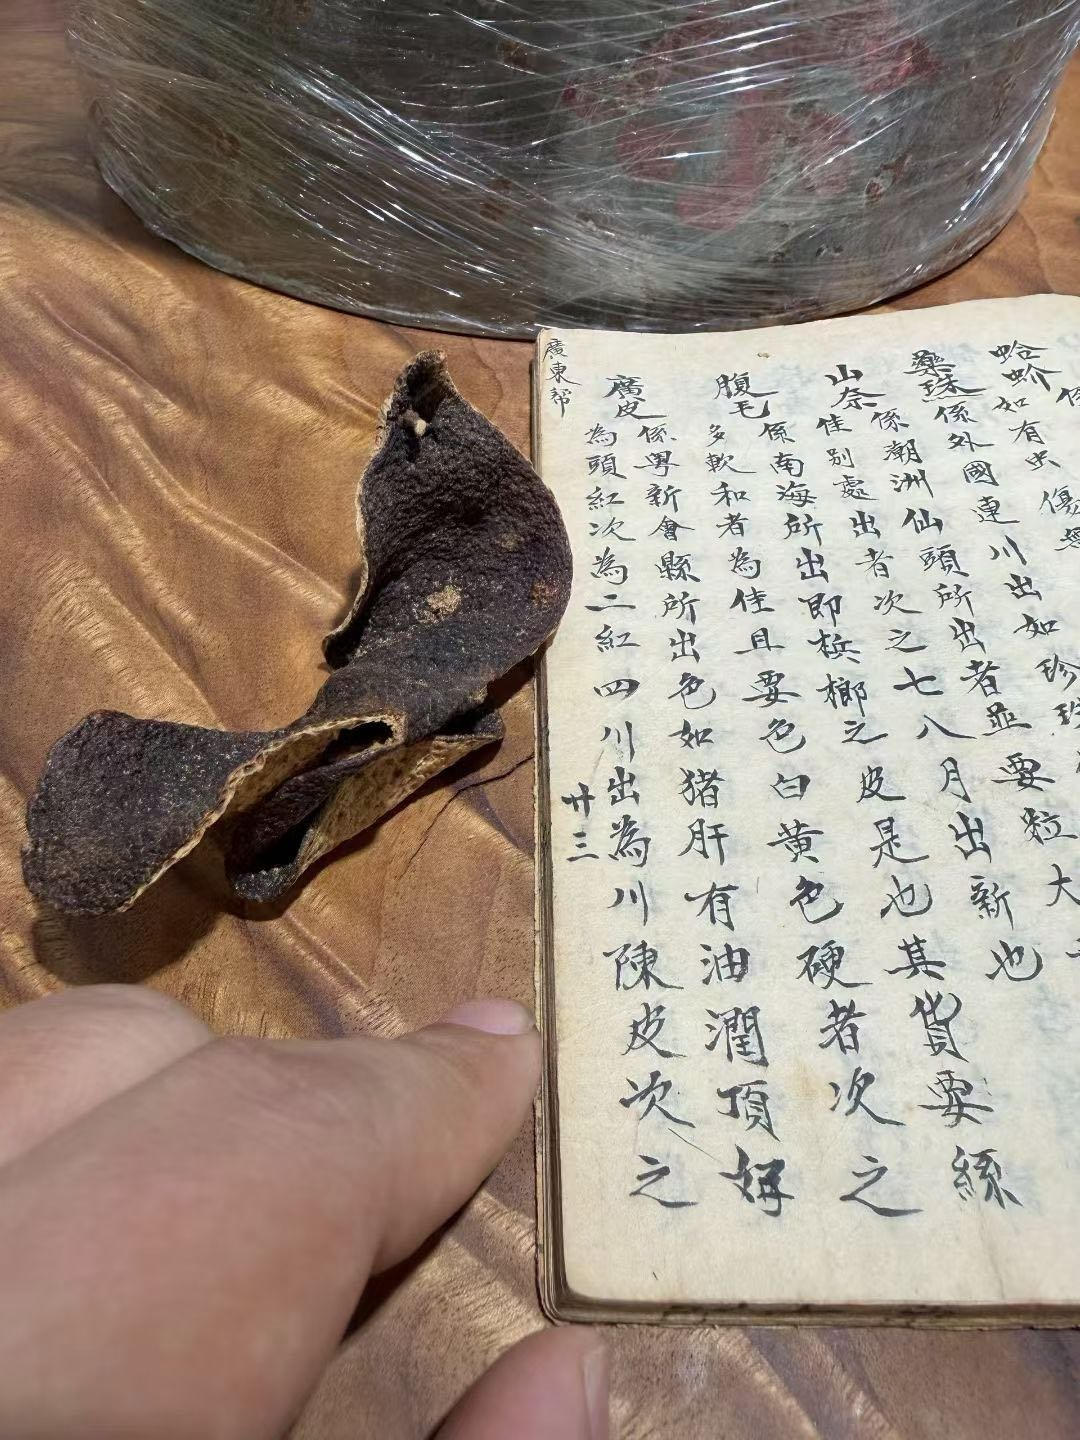 蛤蚧
如有虫傷
藥珠
係外國連川出如珍
山奈
係潮洲仙頭所出者並要粒大
佳別處出者次之七八月出新也
腹毛
係南海所出即梹榔之皮是也其貨要絲
多軟和者為佳且要色白黃色硬者次之
廣皮
係粵新會縣所出色如猪肝有油潤頂好
為頭紅次為二紅四川出為川陳皮次之
廣東幇
廿三